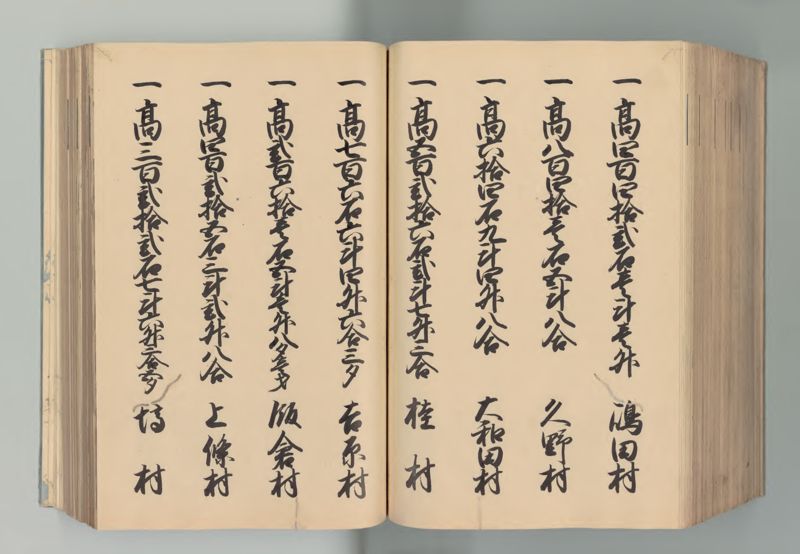 一 高四百四拾弐石壱斗壱升 鴻田村
一 高八百四拾壱石五斗八合 久野村
一 高六拾四石九斗四升八合 大和田村
一 高五百弐拾六石弐斗七升二合 桂村
一 高七百六石六斗四升六合三夕 吉原村
一 高弐百六拾壱石五斗壱升八夕壱才 版倉村
一 高四百弐拾五石三斗弐升八合 上條村
一 高三百弐拾弐石七斗六升二合 村